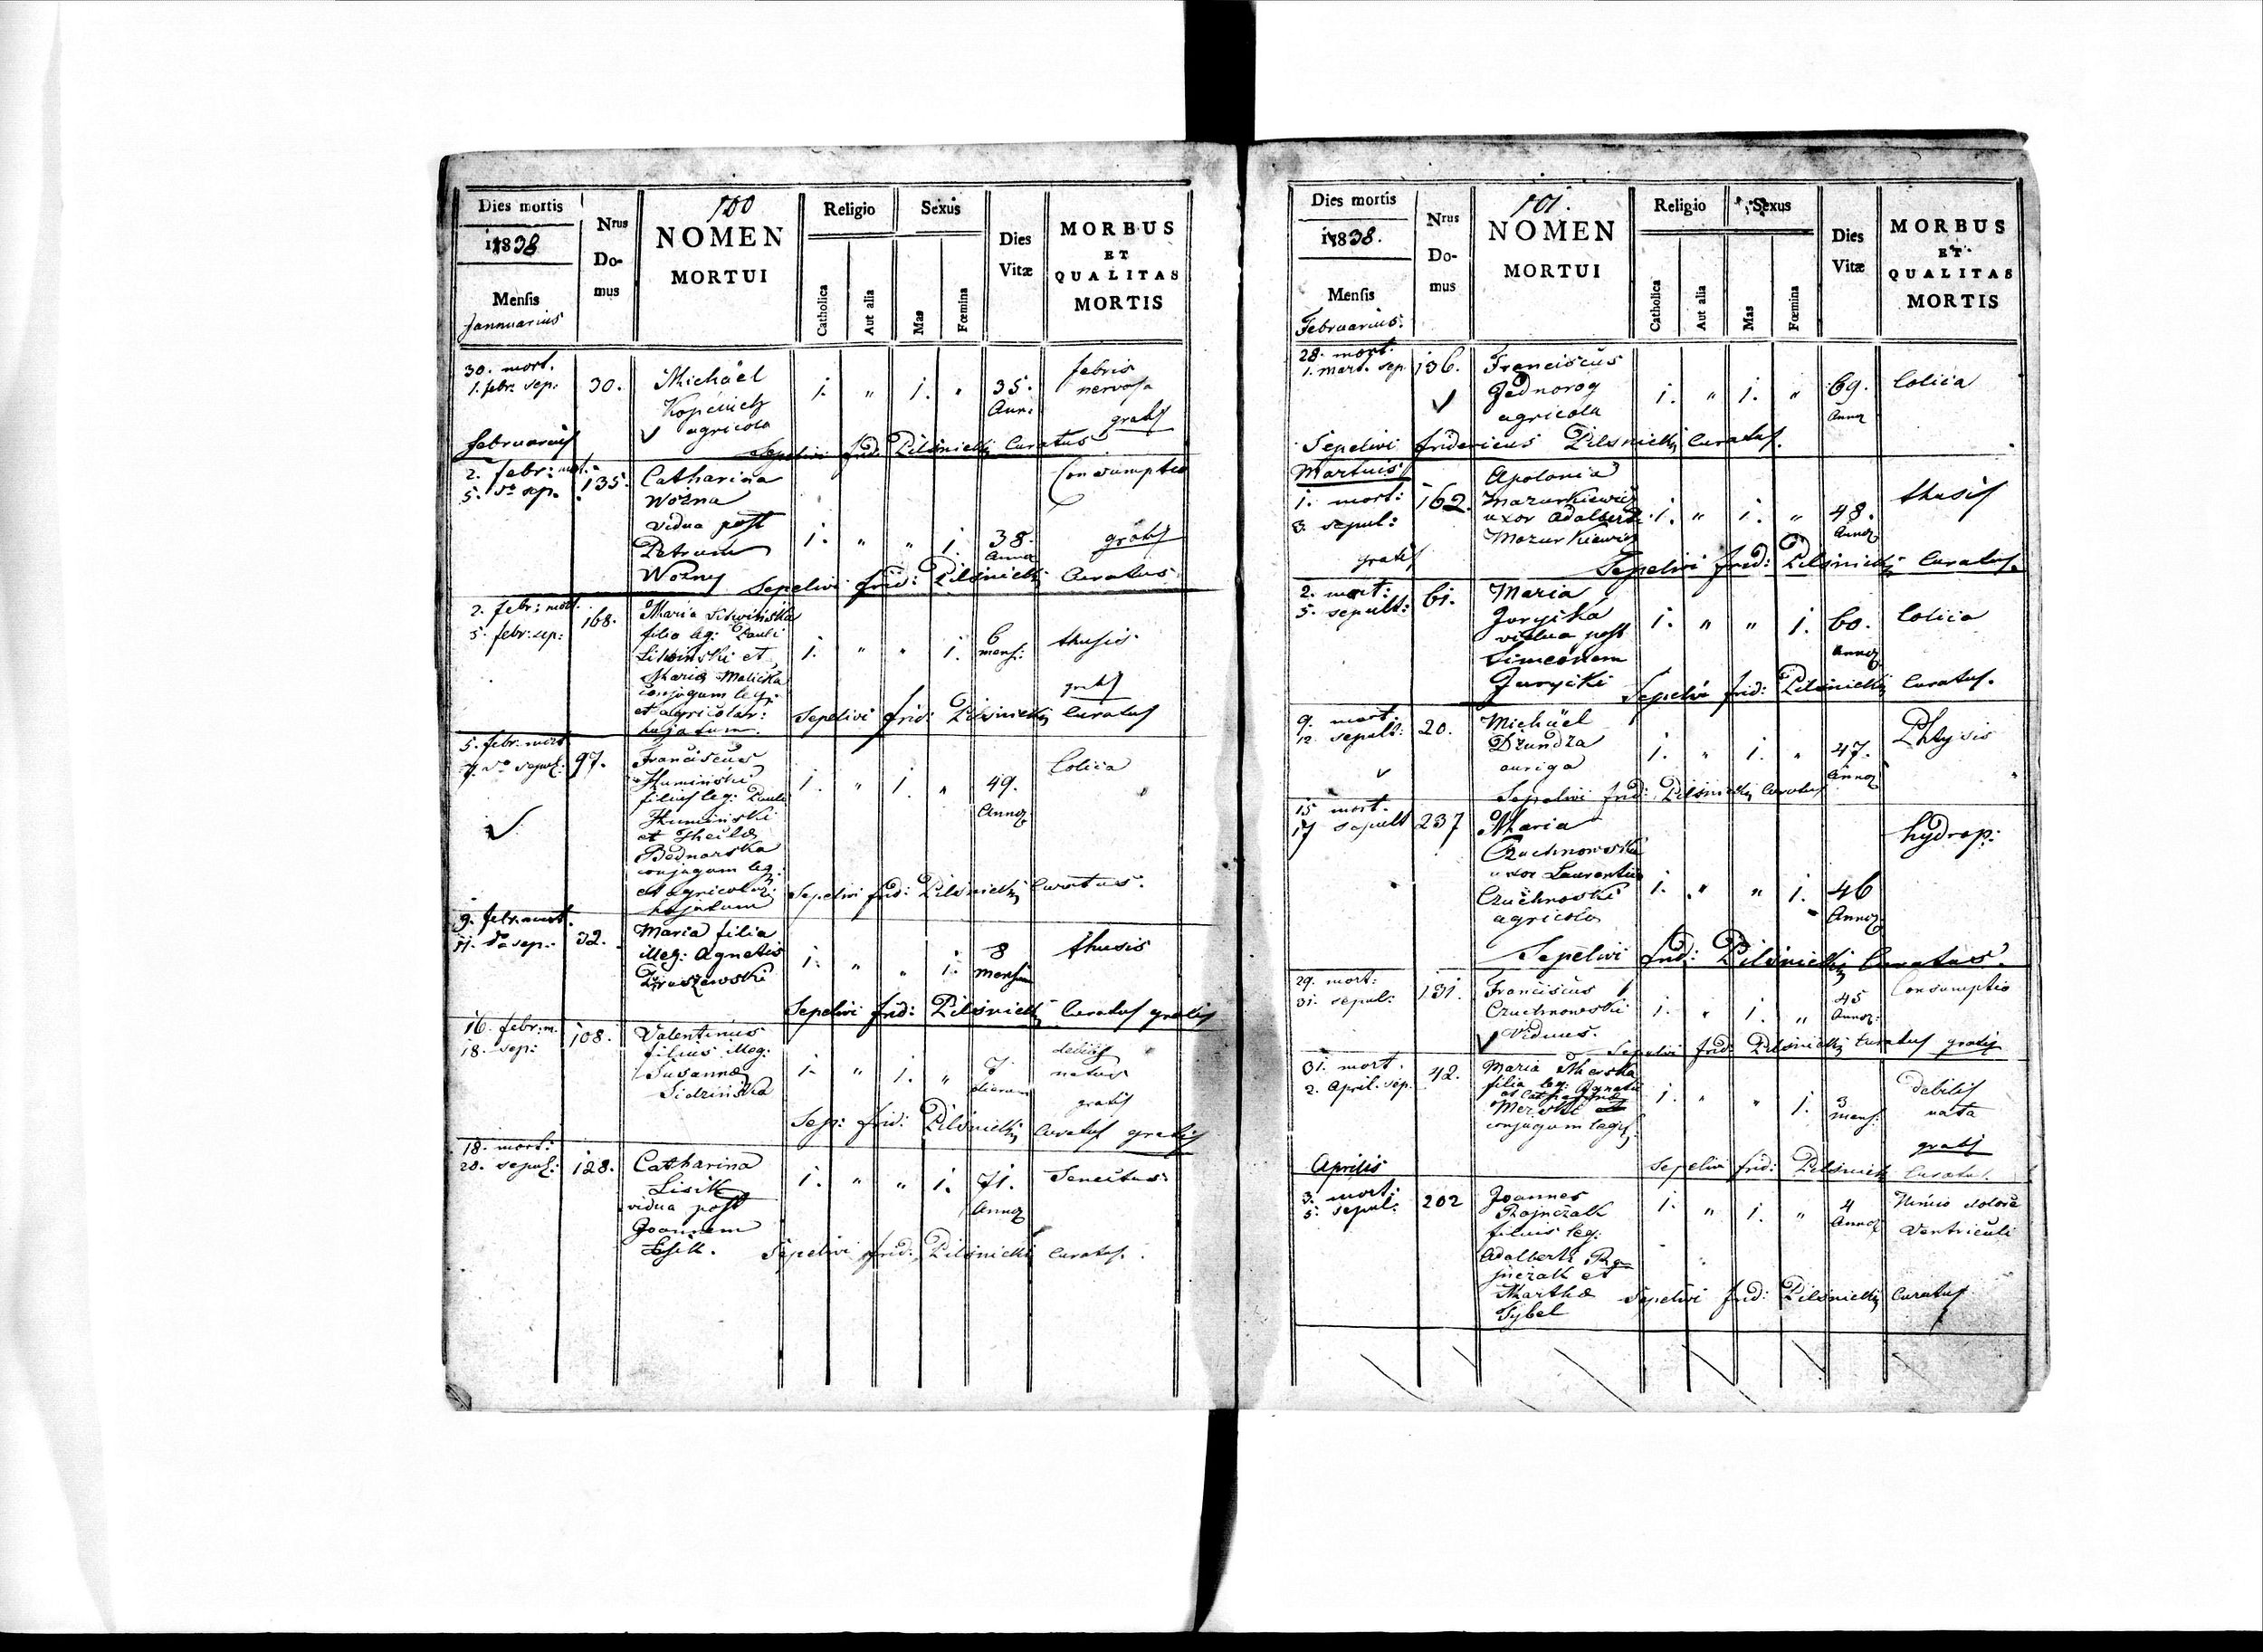 100
Dies mortis
1838
Mensis
Jannuarius
Nrus
Do-
mus
NOMEN
MORTUI
Religio
Catholica
Aut alia
Sexus
Mas
Fœmina
Dies
Vitæ
MORBUS
ET
QUALITAS
MORTIS
30. mort.
1. febr. sep:
30.
Michäel
agricola
1. " 1. "
35.
Ann:
febris
nervosa
gratis
Sepelivi frid: Pilsnicki Curatus
Februarius
2. febr: mort.
5. do sep.
135.
Catharina
Wozna
vidua post
Petrum
Wozny
1. " " 1.
38.
Annor
Consumptio
gratis
Sepelivi frid: Pilsnicki Curatus
2. febr: mort.
5. febr: sep:
168.
Maria Litwinska
filia leg: Pauli
Litwinski et
Maria Malicka
conjugum leg:
et agricolar:
hujatum.
1. " " 1.
6
mens:
thusis
gratis
Sepelivi frid: Pilsnicki Curatus
5. febr: mort
7. do sepul:
97.
Franciscus
Huminski
filius leg: Pauli
Huminski
et Theclæ
Bednarska
conjugum leg:
et agricolar:
hujatum
1. " 1. "
49.
Annor
Colica
Sepelivi frid: Pilsnicki Curatus.
9. febr. mort.
11. do sep:
32.
Maria filia
illeg: Agnetis
1. " " 1.
8
mensium
thusis
Sepelivi frid: Pilsnicki Curatus gratis
16. febr: m.
18. sep:
108.
Valentinus
filius illeg:
Susannæ
Sidzinska
1. " 1. "
7
dierum
debilis
natus
gratis
Sep: frid: Pilsnicki Curatus gratis
18. mort:
20. sepul:
128.
Catharina
Lisik
vidua post
Joannem
Lisik.
1. " " 1.
71.
Annor
Senectus
Sepelivi frid: Pilsnicki Curatus.
101.
Dies mortis
1838.
Mensis
Februarius.
Nrus
Do-
mus
NOMEN
MORTUI
Religio
Catholica
Aut alia
Sexus
Mas
Fœmina
Dies
Vitæ
MORBUS
ET
QUALITAS
MORTIS
28. mort.
1. mart. sep.
136.
Franciscus
Jednorog
agricola
1. " 1. "
69.
Annor
Colica
Sepelivi fridericus Pilsnicki Curatus.
Martius
1. mort:
3. sepul:
gratis
162.
Apolonia
Mazurkiewicz
uxor Adalberti
Mazurkiewicz
1. " 1. "
48.
Annor
thusis
Sepelivi frid: Pilsnicki Curatus.
2. mort:
5. sepult:
61.
Maria
Juryska
vidua post
Simeonem
Jurycki
1. " " 1.
60.
Annor
Colica
Sepelvi frid: Pilsnicki Curatus.
9. mort
12. sepult:
20.
Michäel
Dzundza
auriga
1. " 1. "
47.
Annor
Phtysis
Sepelivi frid: Pilsnicki Curatus
15 mort.
17 sepult
237
Maria
Czuchnowska
uxor Laurentii
Czuchnowski
agricola
1. " " 1.
46
Annor
hydrop:
Sepelivi frid: Pilsnicki Curatus.
29. mort:
31. sepul:
131.
Franciscus
Czuchnowski
Viduus.
1. " 1. "
45
Annor:
Consumptio
Sepelivi frid: Pilsnicki Curatus gratis
31. mort.
2. April. sep.
42.
Maria Merska
filia leg: Ignatii
Merski
conjugum leg:
1. " " 1.
3
mens:
debilis
nata
gratis
Sepelivi frid: Pilsnicki Curatus.
Aprilis
3. mort:
5. sepul:
202
Joannes
Rajnczak
filius leg:
Adalberti Raj-
nczak et
Marthæ
Sybel
1. " 1. "
4
Annor
Nimio dolore
Ventriculi
Sepelivi frid: Pilsnicki Curatus